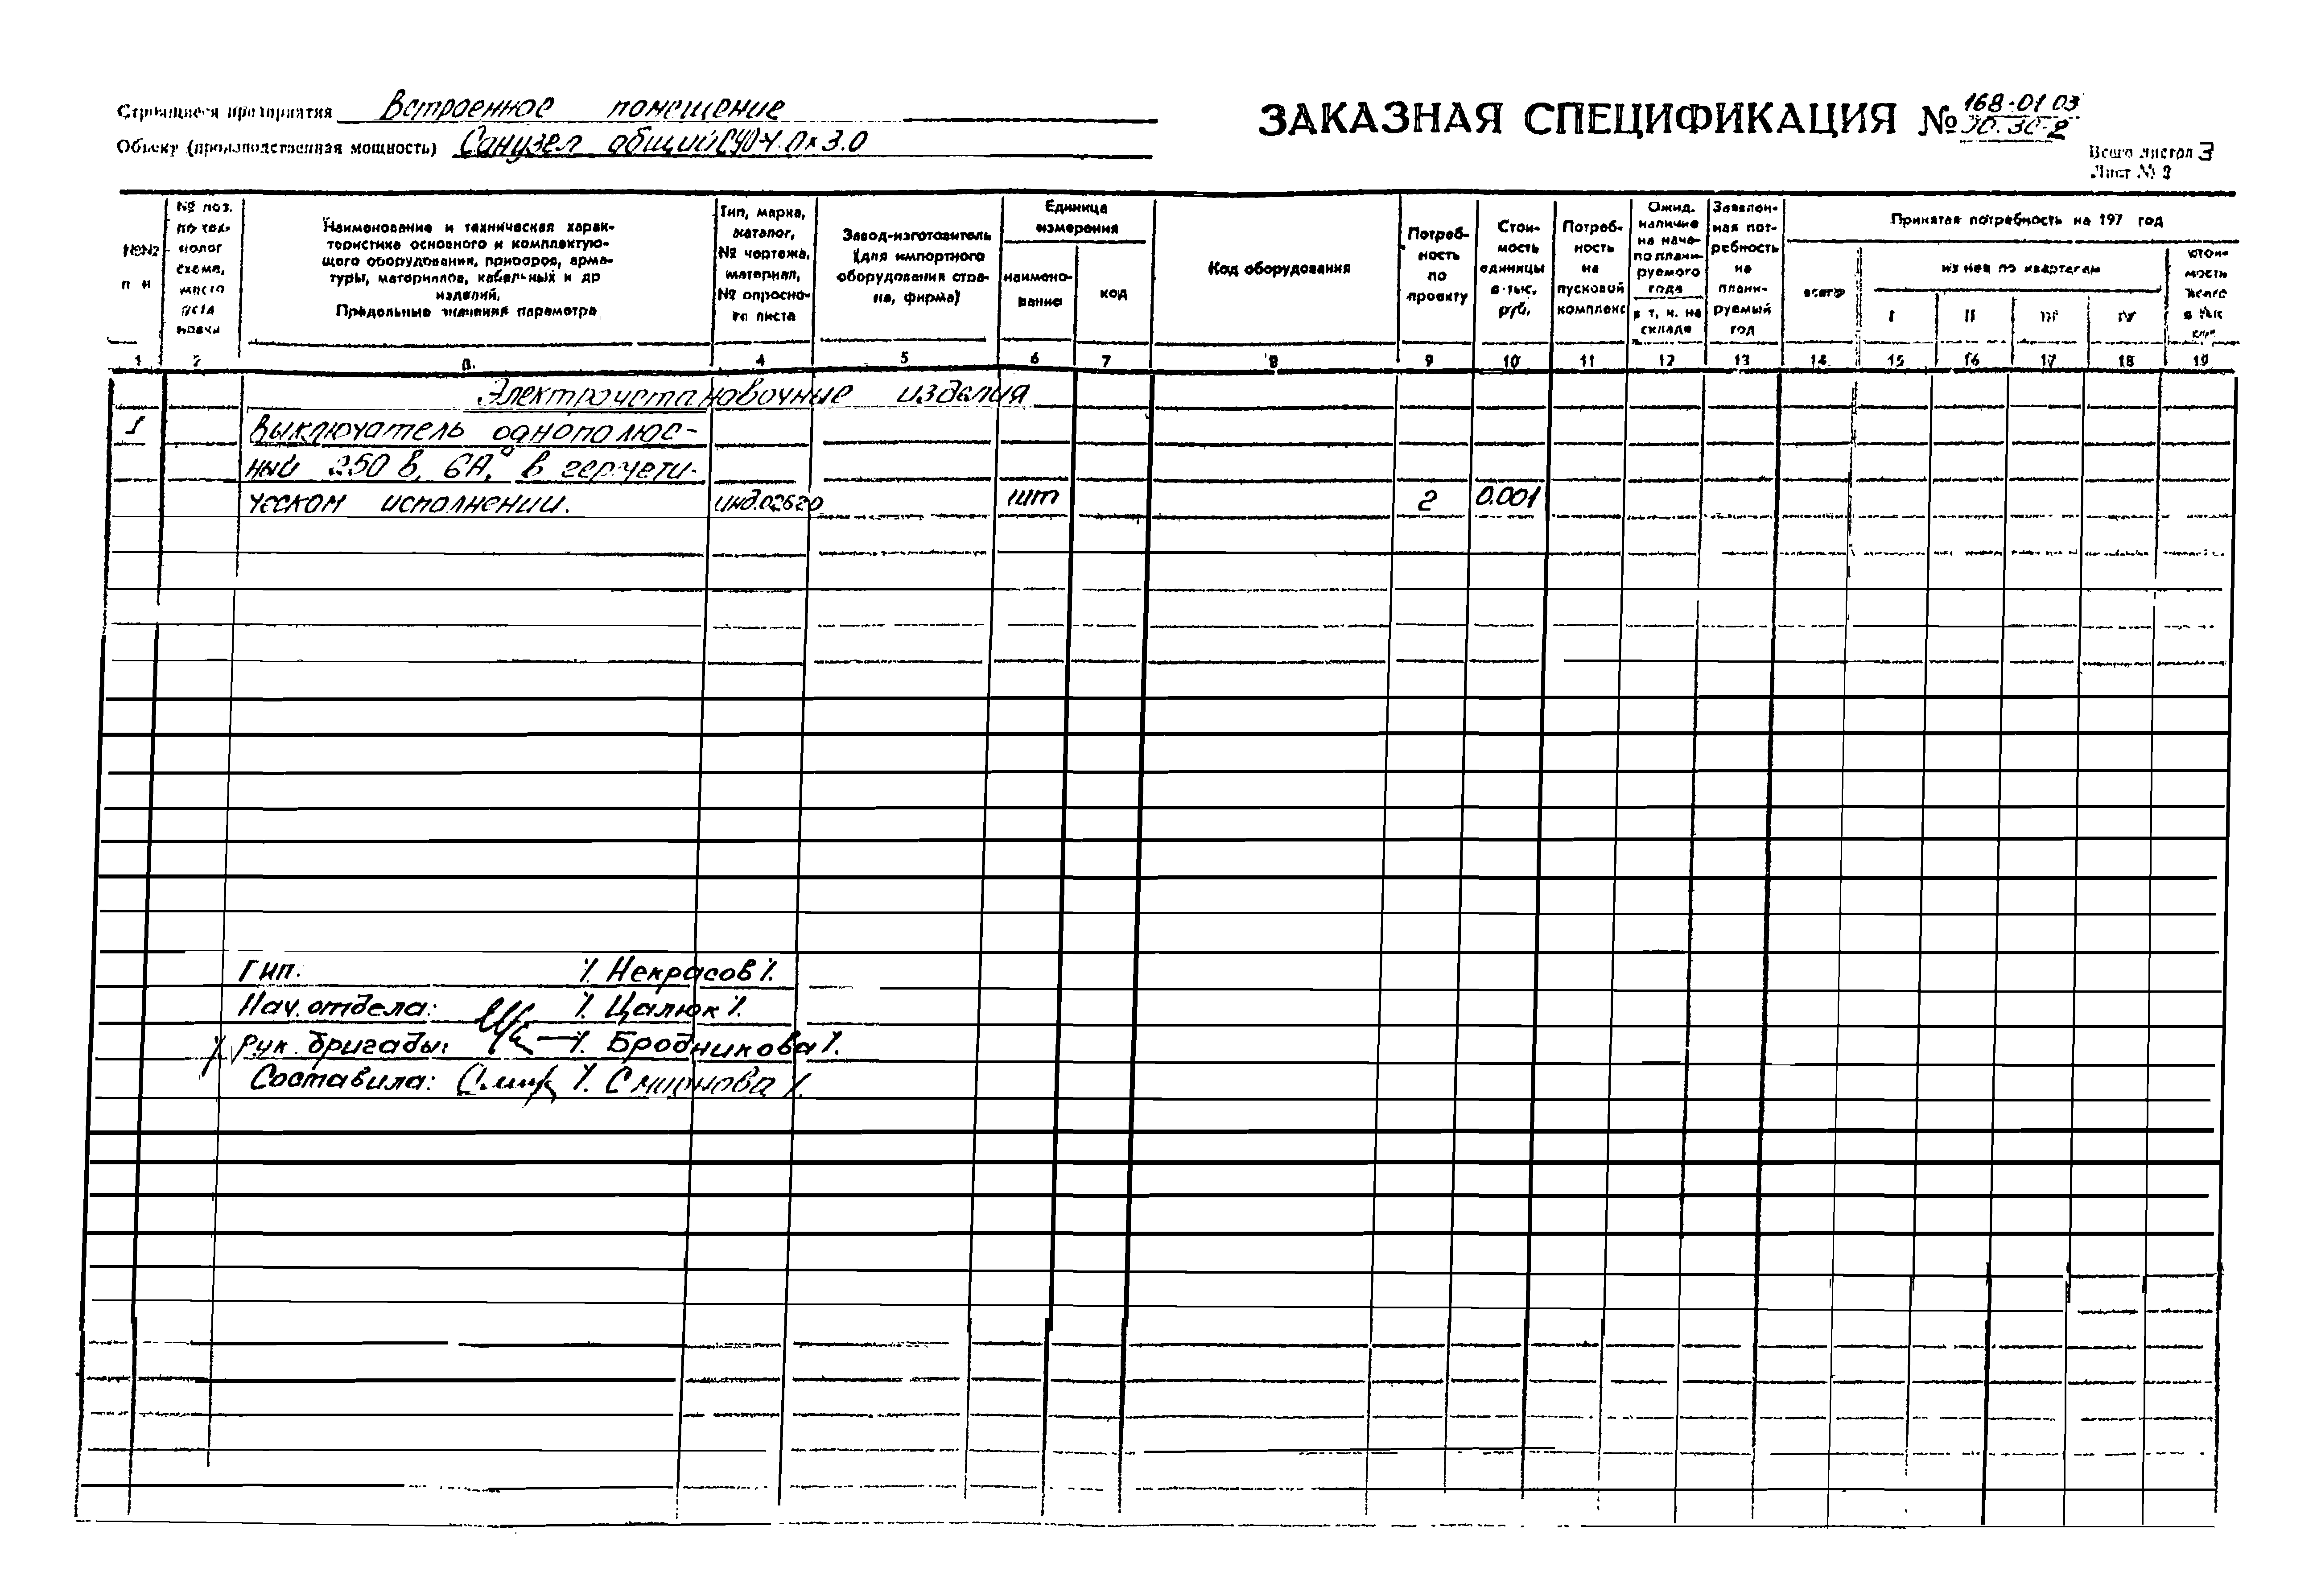 Строящиеся предприятия Встроенное помещение
ЗАКАЗНАЯ СПЕЦИФИКАЦИЯ № 168-01 03
Объект (производственная мощность) Санузел общий
Всего листов 3
Лист № 3
№№ п п
№ поз. по технолог схеме, место уста новки
Наименование и техническая харак-
теристика основного и комплектую-
щего оборудования, приборов, арма-
туры, материалов, кабельных и др
изделий.
Предельные значения параметра
Тип, марка,
каталог,
№ чертежа,
материал,
№ опросно-
го листа
Завод-изготовитель
(для импортного
оборудования стра-
на, фирма)
Единица
измерения
наимено-
вание
код
Код оборудования
Потреб-
ность
по
проекту
Стои-
мость
единицы
в тыс.
руб.
Потреб-
ность
на
пусковой
комплекс
Ожид.
наличие
на нача-
ло плани-
руемого
года
в т. ч. на
складе
Заявлен-
ная пот-
ребность
на
плани-
руемый
год
Принятая потребность на 197 год
всего
из нее по кварталам
I II III IV
стои-
мость
всего
в тыс
руб
1 2 3. 4 5 6 7 8 9 10 11 12 13 14. 15 16 17 18 19
Электроустановочные изделия
1 Выключатель однополюс-
ный 250 в, 6А, в гермети-
ческом исполнении. инд.02620 шт 2 0.001
Гип. /. Некрасов /.
Нач. отдела: /. Цалюк /.
Рук. бригады: /. Бродникова /.
Составила: /. Смирнова /.